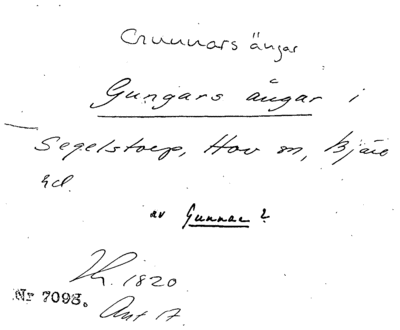 Gunnars ängar
Gungars ängar i
Segelstorp, Hov sn, Bjäre
hd.
av Gunnar?
1820
Nr 7098.
Ant 17